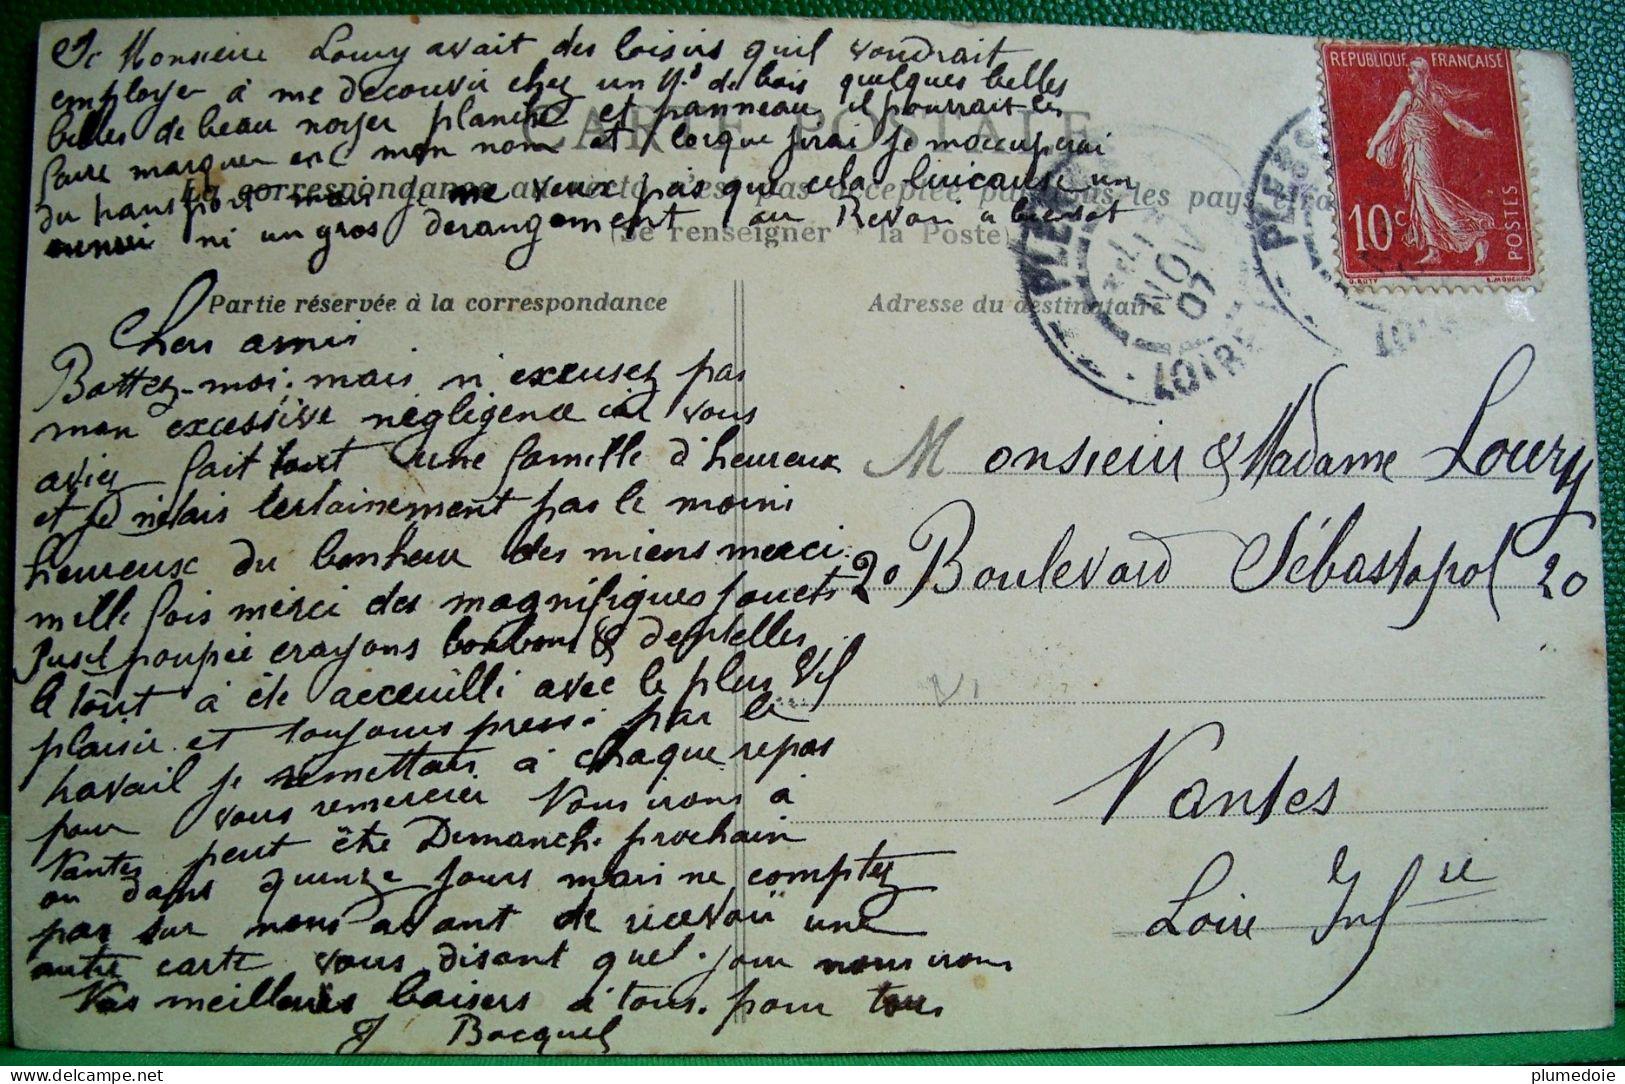 Si Monsieur Loury avait des loisirs quil voudrait
employer à me decouvrir chez un Md de bois quelques belles
belles de beau noyer planche et panneau il pourrait les
faire marquer mon nom et lorque jirai je moccuperai
du transport mais je ne veux pas que cela lui cause un
ennui ni un gros derangement au Revoir a bientot
CARTE POSTALE
La correspondance au recto n'est pas acceptée par tous les pays étrangers
(Se renseigner à la Poste)
Partie réservée à la correspondance
Adresse du destinataire
RÉPUBLIQUE FRANÇAISE
10c
POSTES
O. ROTY
E. MOUCHON
NOV
07
LOIRE
Chers amis
Battez-moi. mais n'excusez pas
mon excessive négligence car vous
aviez fait tout une famille d'heureux
et je n'étais certainement pas le moins
heureux du bonheur des miens merci
mille fois merci des magnifiques jouets
fusil poupée crayons bonbons & dentelles
le tout à été acceuilli avec le plus vif
plaisir et toujours pressé par le
travail je remettais à chaque repas
pour vous remercier Nous irons à
Nantes peut être Dimanche prochain
ou dans quinze jours mais ne comptez
pas sur nous avant de recevoir une
autre carte vous disant quel jour nous irons
Nos meilleurs baisers à tous. pour tous
J Bocquel
Monsieur & Madame Loury
20 Boulevard Sébastopol 20
Nantes
Loire Infre
delcampe.net
plumedoie